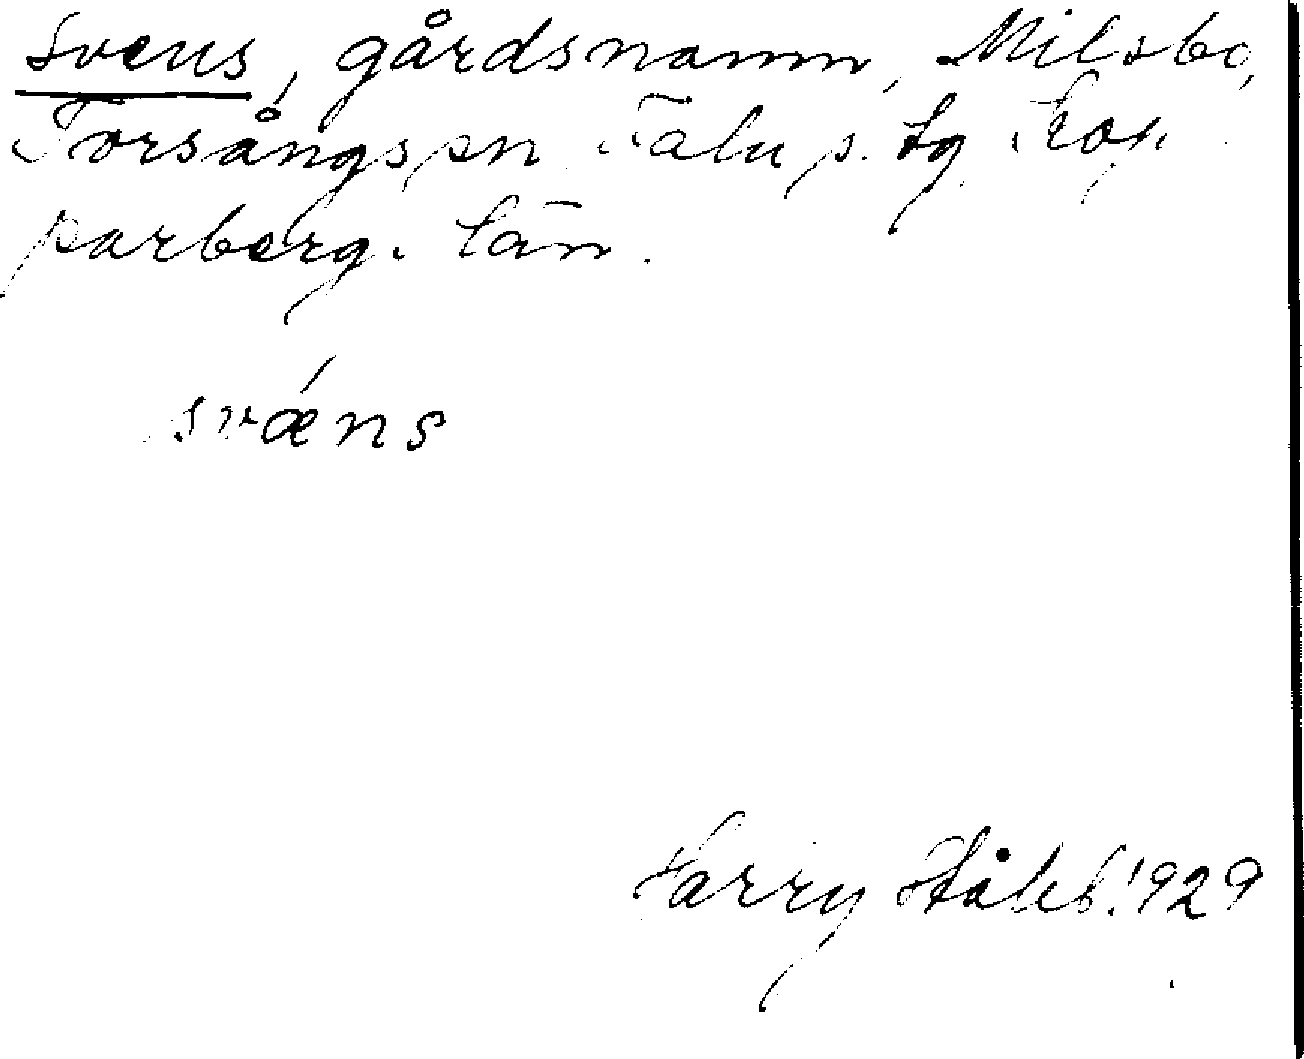 Svens, gårdsnamn, Milsbo,
Torsångs sn Falu s. tg Kop-
parberg. län.
svǽns
Harry Ståhl. 1929